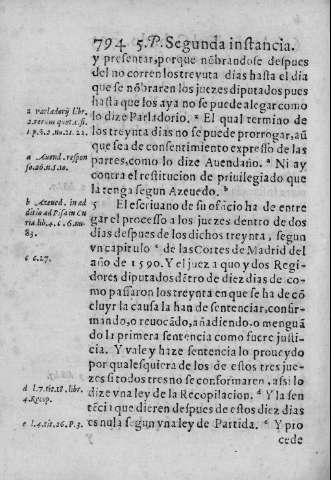 794 5.P. Segunda instancia.
y presentar, porque nõbrandose despues
del no corren los treynta dias hasta el dia
que se nõbraren los juezes diputados pues
hasta que los aya no se puede alegar como
lo dize Parladorio. ᶻ El qual termino de
los treynta dias no se puede prorrogar, aũ
que sea de consentimiento expresso de las
partes, como lo dize Auendaño. ᵃ Ni ay
contra el restitucion de priuilegiado que
la tenga segun Azeuedo. ᵇ
5 El escriuano de su oficio ha de entre
gar el processo a los juezes dentro de dos
dias despues de los dichos treynta, segun
vn capitulo ᶜ de las Cortes de Madrid del
año de 1590. Y el juez a quo y dos Regi-
dores diputados dẽtro de diez dias de co-
mo passaron los treynta en que se ha de cõ
cluyr la causa la han de sentenciar, confir-
mando, o reuocãdo, añadiendo, o menguã
do la primera sentencia como fuere justi-
cia. Y vale y haze sentencia lo proueydo
por qualesquiera de los de estos tres jue-
zes si todos tres no se conformaren, assi lo
dize vna ley de la Recopilacion. ᵈ Y la sen
tẽcia que dieren despues de estos diez dias
es nula segun vna ley de Partida. ᵉ Y pro
cede
z parladorij libr.
2. rerum quot. c. fi.
1 p. §. 2. nu. 21. 22.
a Auend. respon
so. 26. n. 5. 10.
b Azeued. in ad
ditio ad Pisam in Cu
ria lib. 4. c. 6. nu.
83.
c c. 27.
d l. 7. tit. 18. libr.
4. Recop.
e l. 4. tit. 26. P. 3.